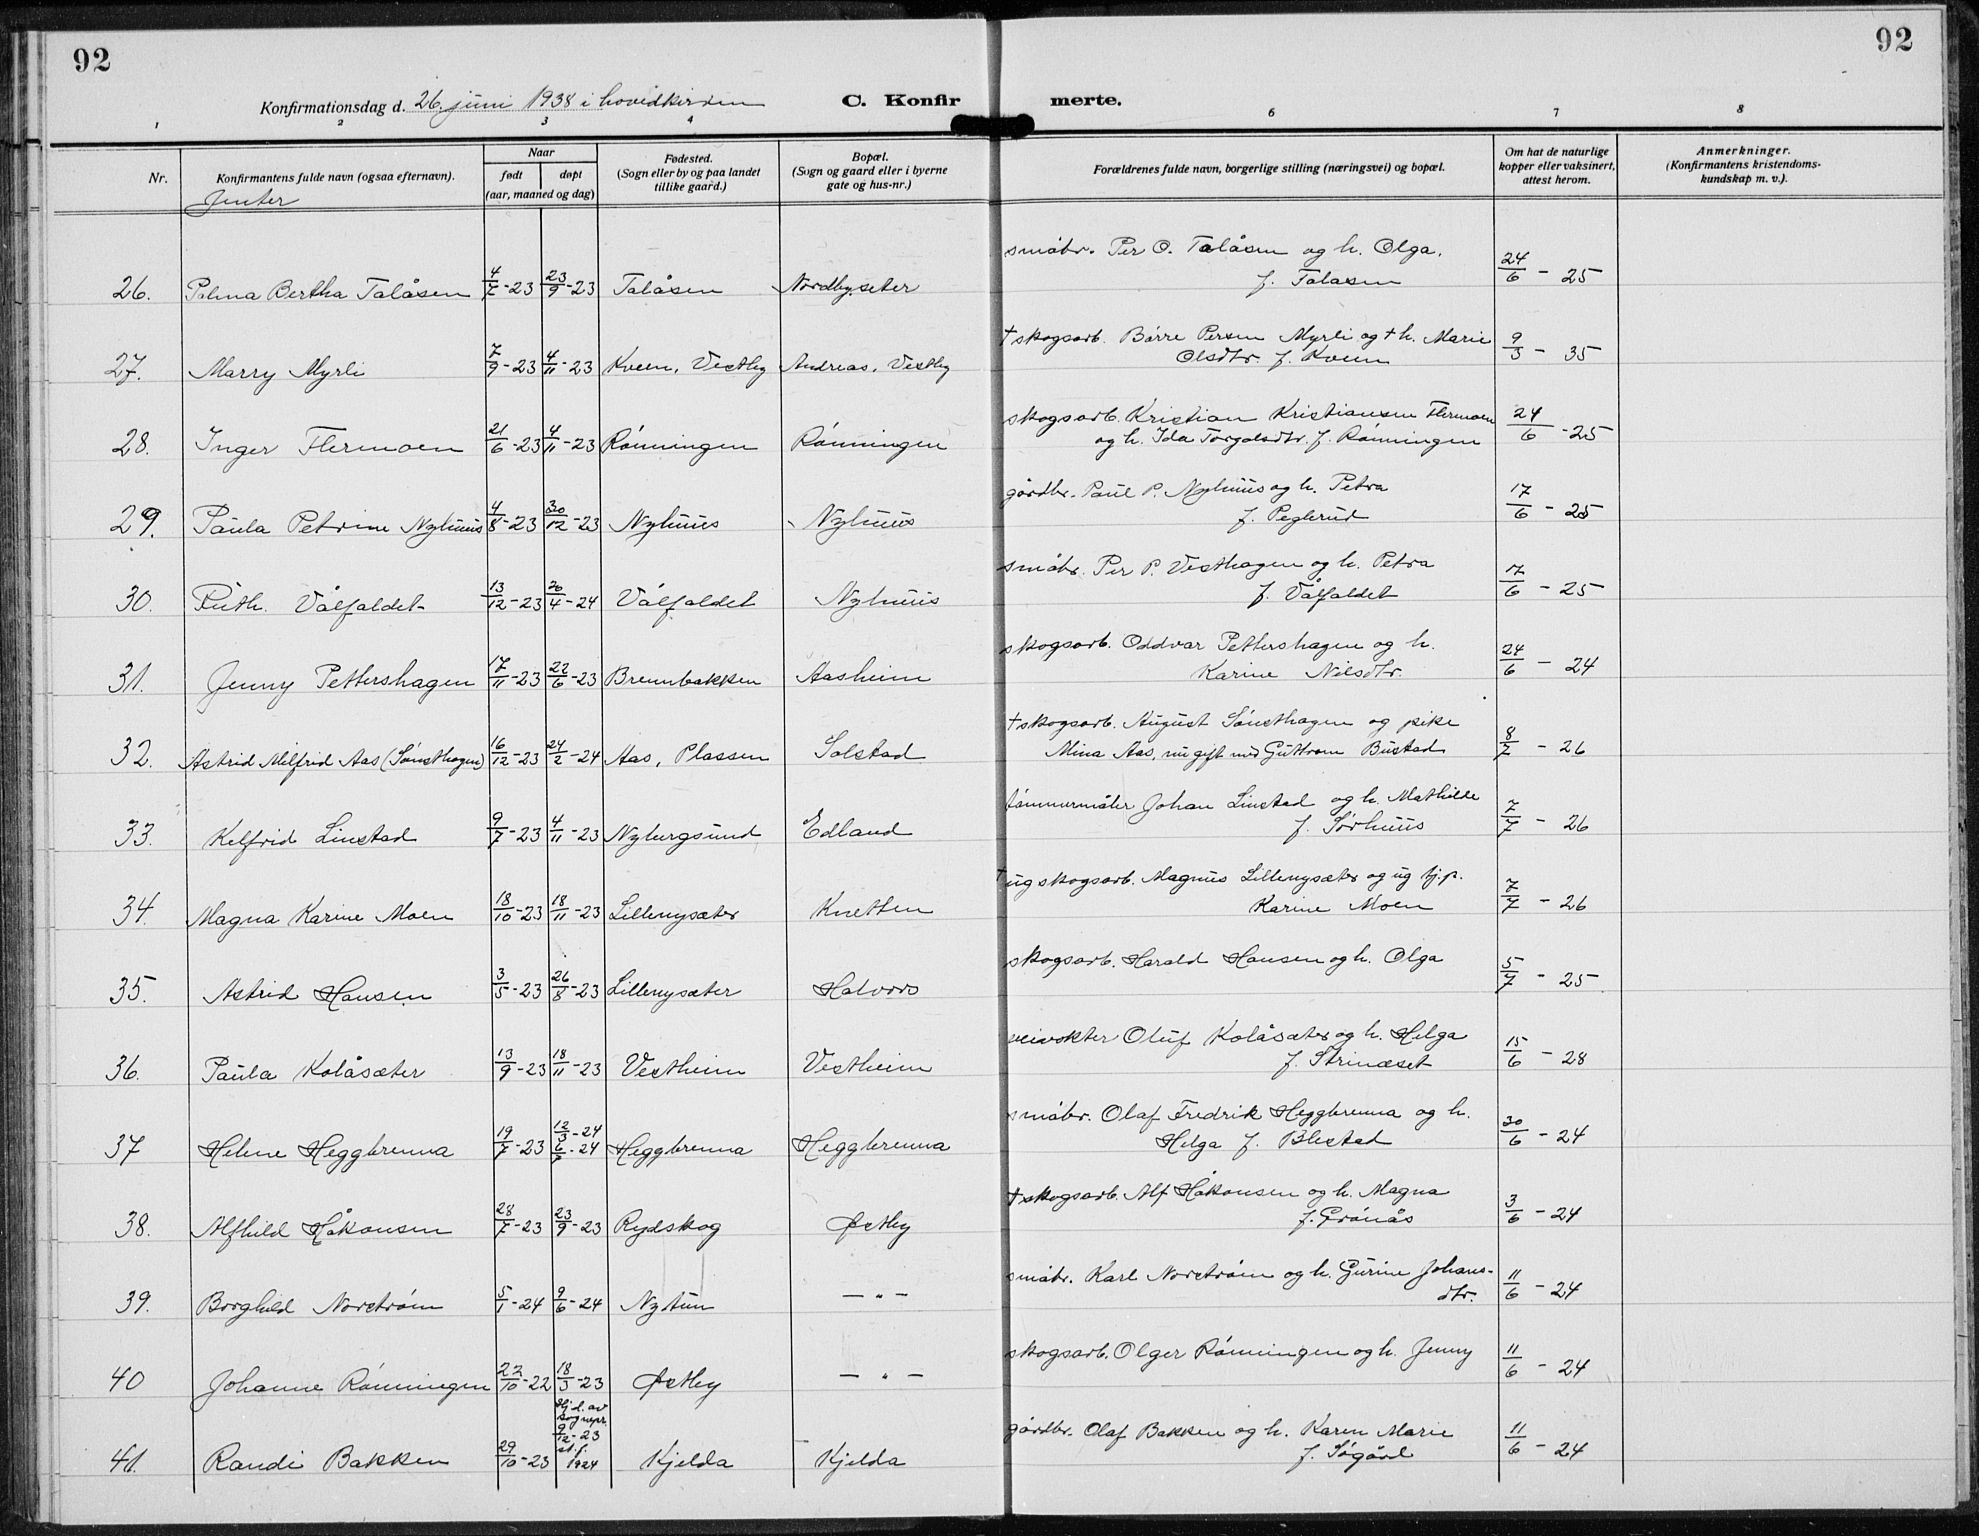 92
92
Konfirmationsdag d. 26. juni 1938 i hovedkirken
C. Konfir
merte.
1 2 3 4 6 7 8
Nr.
Konfirmantens fulde navn (ogsaa efternavn).
Naar
født døpt
(aar, maaned og dag)
Fødested.
(Sogn eller by og paa landet
tillike gaard.)
Bopæl.
(Sogn og gaard eller i byerne
gate og hus-nr.)
Forældrenes fulde navn, borgerlige stilling (næringsvei) og bopæl.
Om hat de naturlige
kopper eller vaksinert,
attest herom.
Anmerkninger.
(Konfirmantens kristendoms-
kundskap m. v.).
Jenter
småbr. Per O. Talåsen og h. Olga.
26. Palma Bertha Talåsen 4/7-23 23/9-23 Talåsen Nordbyseter f. Talåsen 24/6 - 25
† skogsarb. Børre Persen Myrli og † h. Marie
27. Marry Myrli 7/9-23 4/11-23 Kveen, Vestby Andreas, Vestby Olsdtr. f. Kveen 9/3 - 35
skogsarb. Kristian Kristiansen Flermoen
28. Inger Flermoen 21/6-23 4/11-23 Rønningen Rønningen og h. Ida Torgalsdtr. f. Rønningen 24/6 - 25
gårdbr. Paul P. Nyhuus og h. Petra
29. Paula Petrine Nyhuus 4/8-23 30/12-23 Nyhuus Nyhuus f. Peglerud 17/6 - 25
småbr. Per P. Vesthagen og h. Petra
30. Ruth Vålfaldet 13/12-23 20/4-24 Vålfaldet Nyhuus f. Vålfaldet 17/6 - 25
skogsarb. Oddvar Pettershagen og h.
31. Jenny Pettershagen 17/11-23 22/6-23 Brennbakken Aasheim Karine Nilsdtr. 24/6 - 24
† skogsarb. August Sønsthagen og pike
32. Astrid Milfrid Aas (Sønsthagen) 16/12-23 24/2-24 Aas, Plassen Solstad Mina Aas, nu gift med Guttorm Bustad 8/7 - 26
tømmermåler Johan Linstad og h. Mathilde
33. Kelfrid Linstad 9/7-23 4/11-23 Nybergsund Edland f. Sørhuus 7/7 - 26
† ug skogsarb. Magnus Lillenysæter og ug tj.p.
34. Magna Karine Moen 18/10-23 18/11-23 Lillenysæter Knetten Karine Moen 7/7 - 26
skogsarb. Harald Hansen og h. Olga
35. Astrid Hansen 3/5-23 26/8-23 Lillenysæter Halvors 5/7 - 25
veivokter Oluf Kolåsæter og h. Helga
36. Paula Kolåsæter 13/9-23 18/11-23 Vestheim Vestheim f. Strindset 15/6 - 28
småbr. Olaf Fredrik Heggbrenna og h.
37 Helene Heggbrenna 19/7-23 12/3-24 6/7-24 Heggbrenna Heggbrenna Helga f. Blestad 30/6 - 24
† skogsarb. Alf Håkonsen og h. Magna
38. Alfhild Håkonsen 28/7-23 23/9-23 Rydskog Østby f. Grønås 3/6 - 24
småbr. Karl Norstrøm og h. Gurine Johans-
39. Borghild Norstrøm 5/1-24 9/6-24 Nytun — " — dtr. 11/6 - 24
skogsarb. Olger Rønningen og h. Jenny
40 Johanne Rønningen 22/10-22 18/3-23 Østby — " — 11/6 - 24
Hj.d. av
sognepr.
9/12-23
st.f.
1924
gårdbr. Olaf Bakken og h. Karen Marie
41. Randi Bakken 29/10-23 Kjelda Kjelda f. Søgård 11/6 - 24